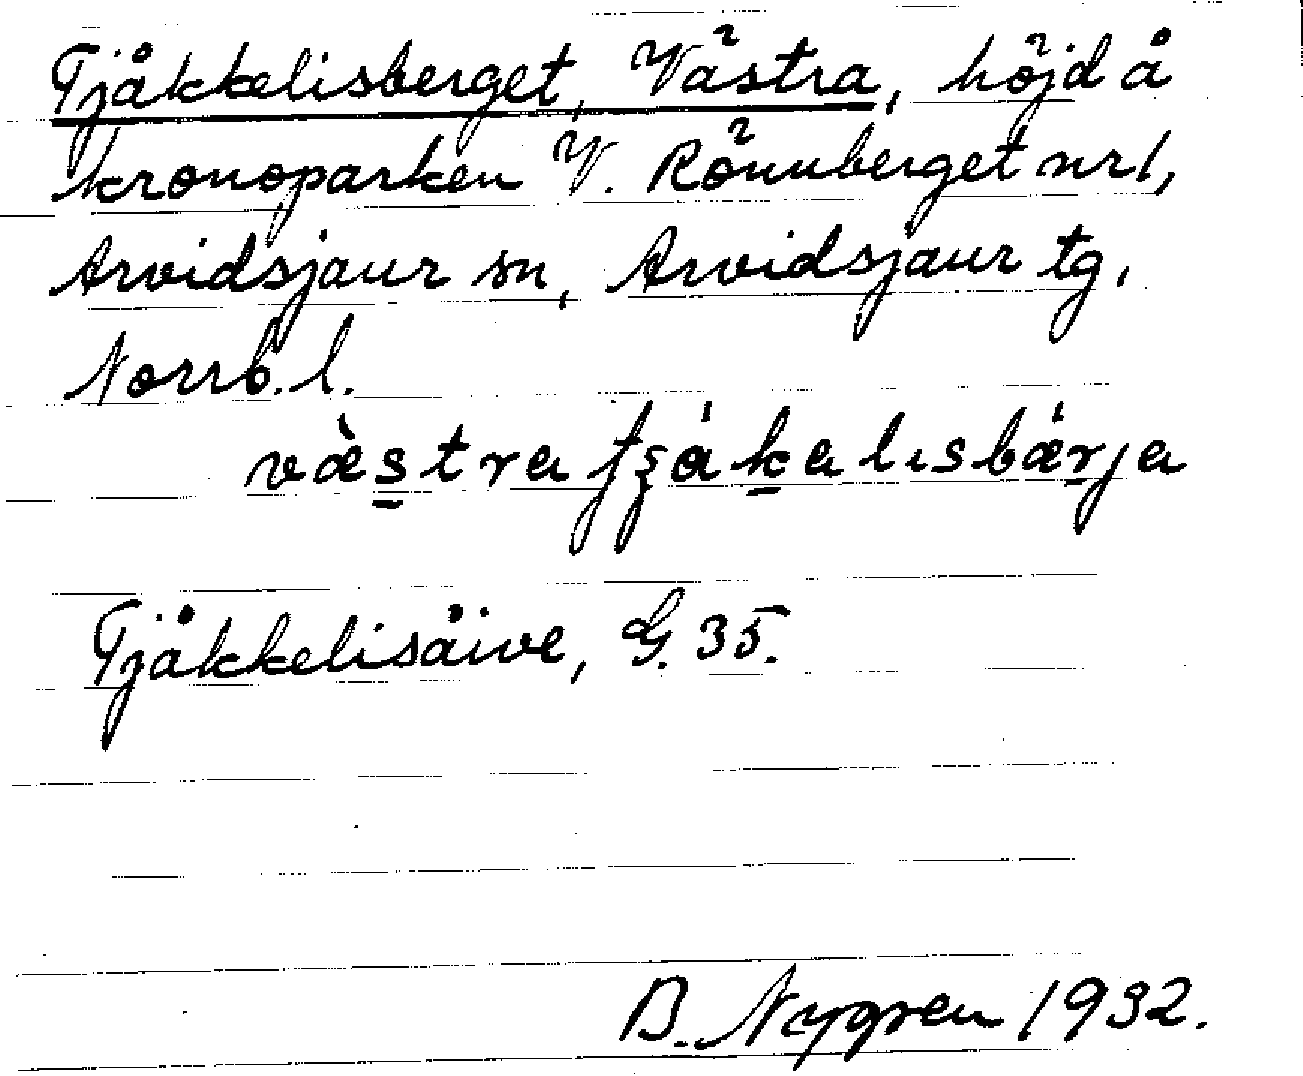 Tjåkkelisberget, Västra, höjd å
kronoparken V. Rönnberget nr 1,
Arvidsjaur sn, Arvidsjaur tg,
Norrb. l.
væ̀s̲tra tʂák̲alisbǽrja
Tjåkkelisäive, G. 35.
B. Nygren 1932.